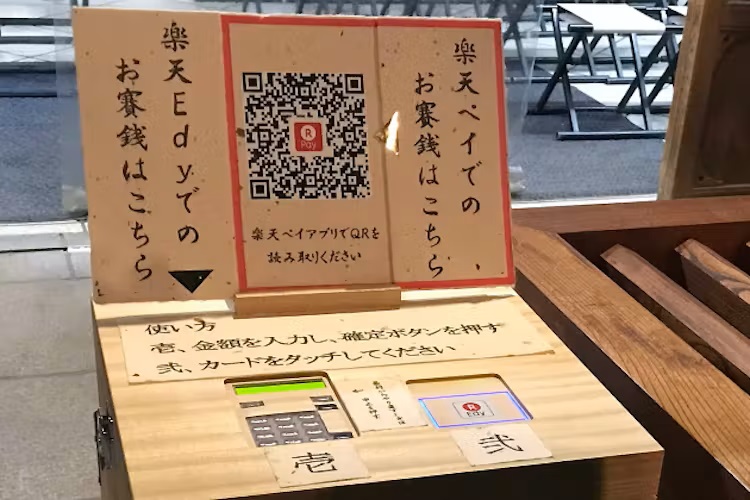 楽天ペイでの
お賽銭はこちら
R
Pay
楽天ペイアプリでQRを
読み取りください
楽天Edyでの
お賽銭はこちら
使い方
壱、金額を入力し、確定ボタンを押す
弐、カードをタッチしてください
R
Edy
壱
弐